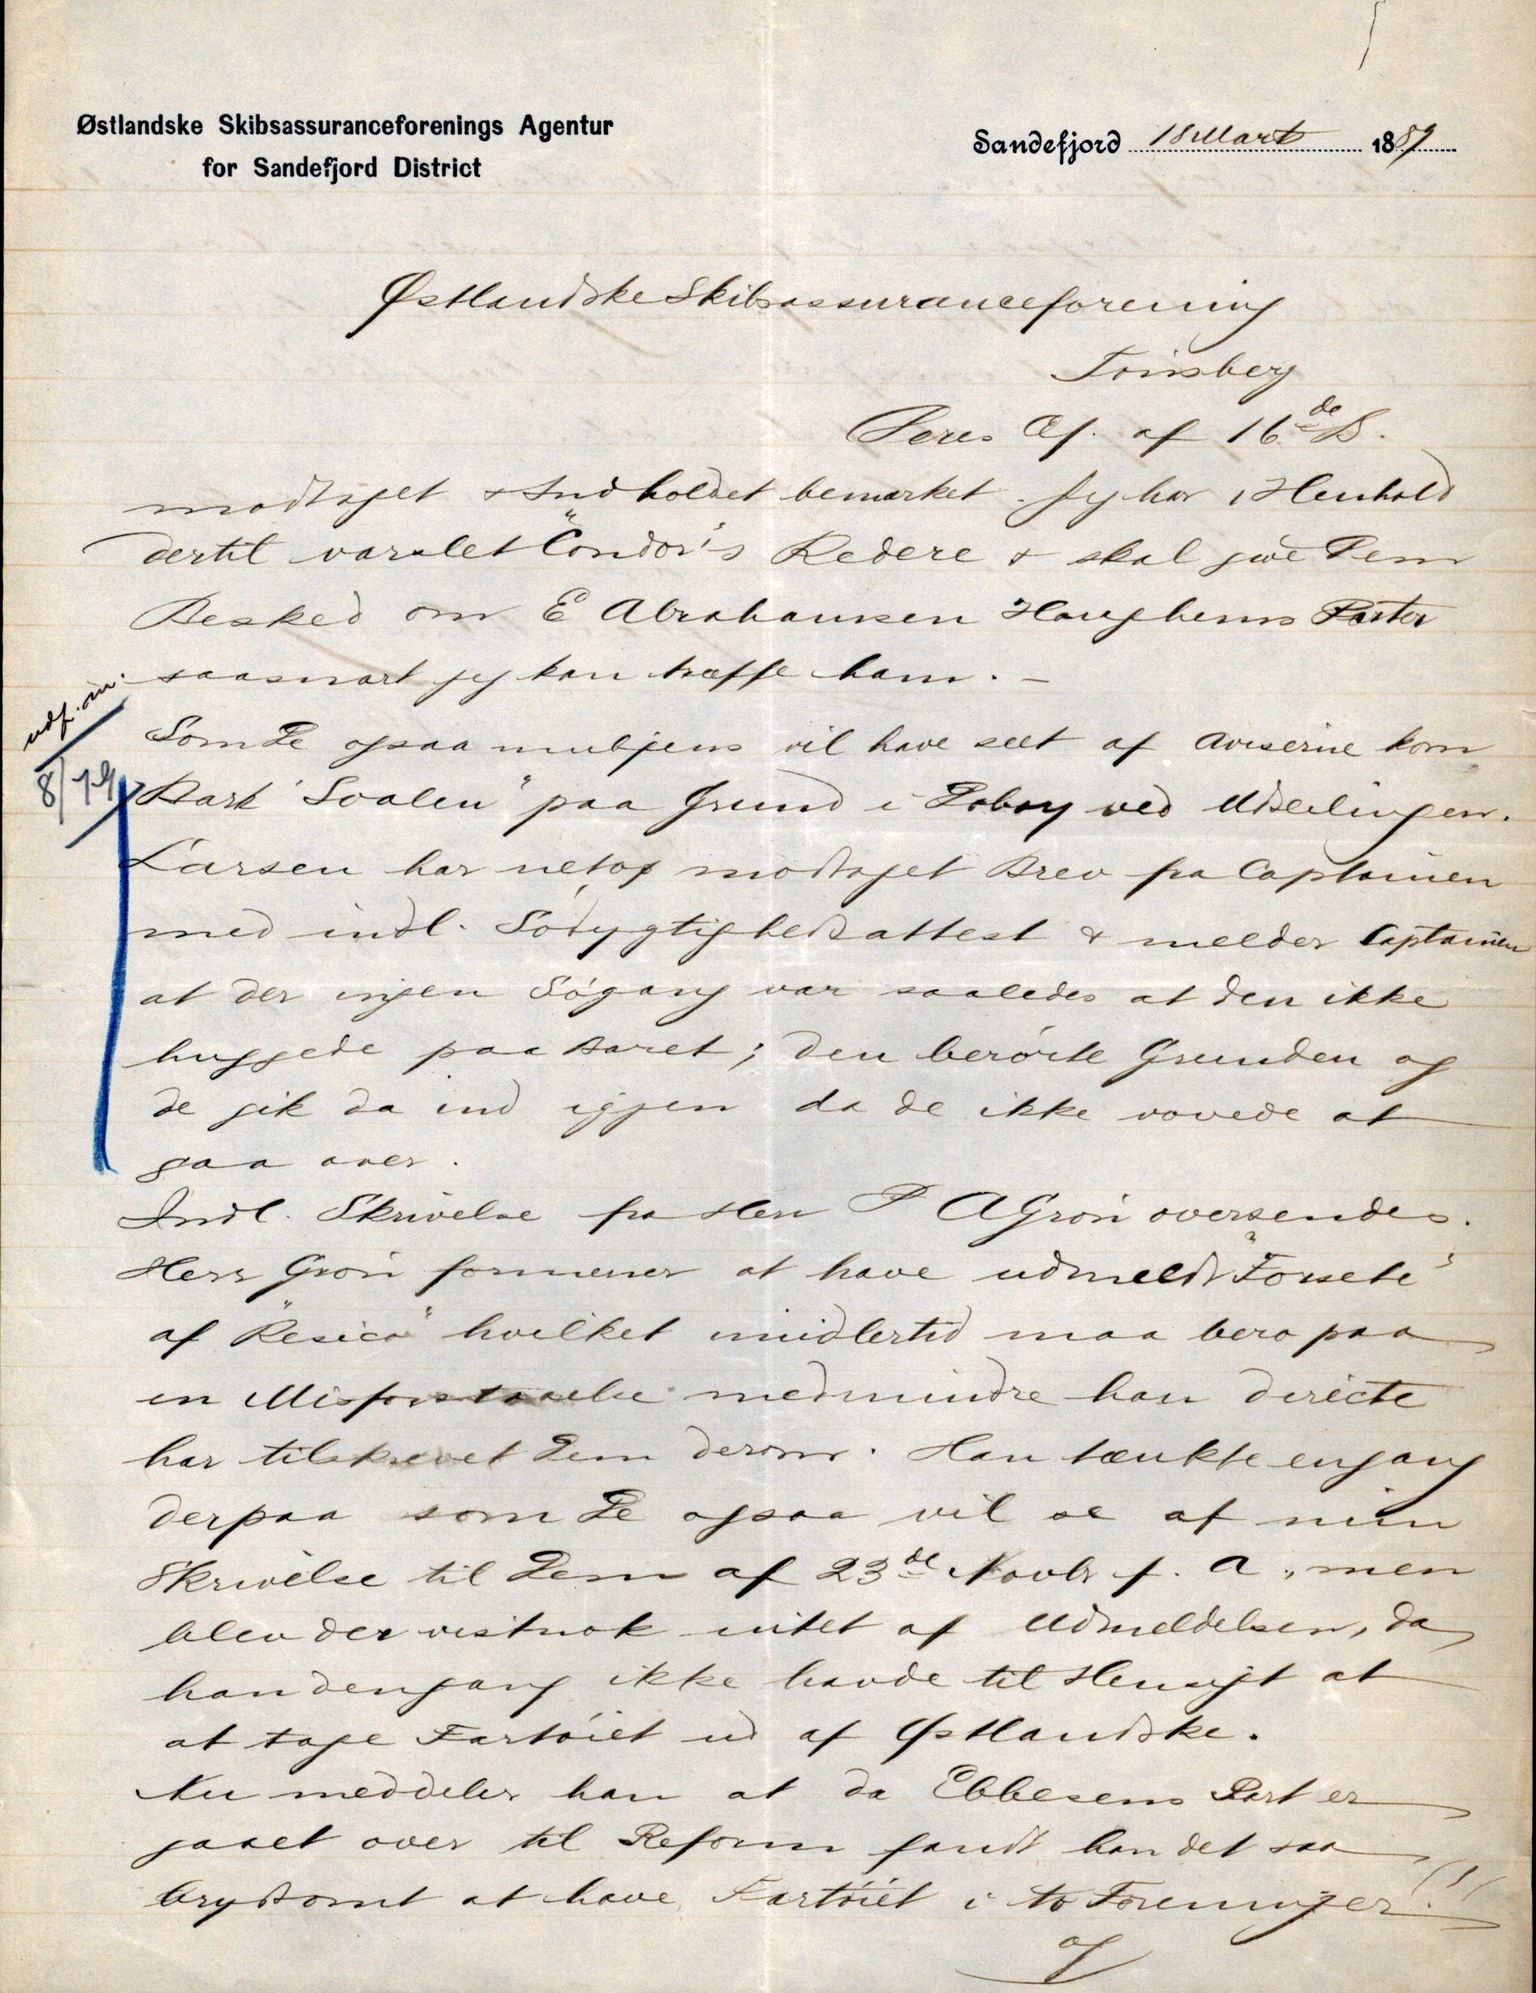 Østlandske Skibsassuranceforenings Agentur
for Sandefjord District
Sandefjord 18 Marts 1889
Østlandske Skibsassuranceforening
Tönsberg
Deres Ær. af 16de ds.
modtaget & Indholdet bemærket. Jeg har i Henhold
dertil varslet "Condor's Redere & skal give Dem
Besked om E Abrahamsen Haughems Parter
saasnart jeg kan træffe ham. —
udf. om.
8/79
Som De ogsaa muligens vil have seet af Aviserne kom
Bark "Svalen" paa Grund i Doboy ved Udseilingen.
Larsen har netop modtaget Brev fra Captainen
med indl. Södygtighedsattest & melder Captainen
at der ingen Sögang var saaledes at den ikke
huggede paa Baret; den berörte Grunden og
de gik da ind igjen da de ikke vovede at
gaa over.
Indl. Skrivelse fra Herr P A Grön oversendes.
Herr Grön formener at have udmeldt "Forsete"
af "Resico" hvilket imidlertid maa bero paa
en Misforstaaelse medmindre han directe
har tilskrevet Dem derom. Han tænkte engang
derpaa som De ogsaa vil se af min
Skrivelse til Dem af 23de Novbr f. A, men
blev der vistnok intet af Udmeldelsen, da
han dengang ikke havde til Hensigt at
at tage Fartöiet ud af Østlandske.
Nu meddeler han at da Ebbesens Part er
gaaet over til Reform fandt han det saa
brydsomt at have Fartöiet i to Foreninger (!!)
og